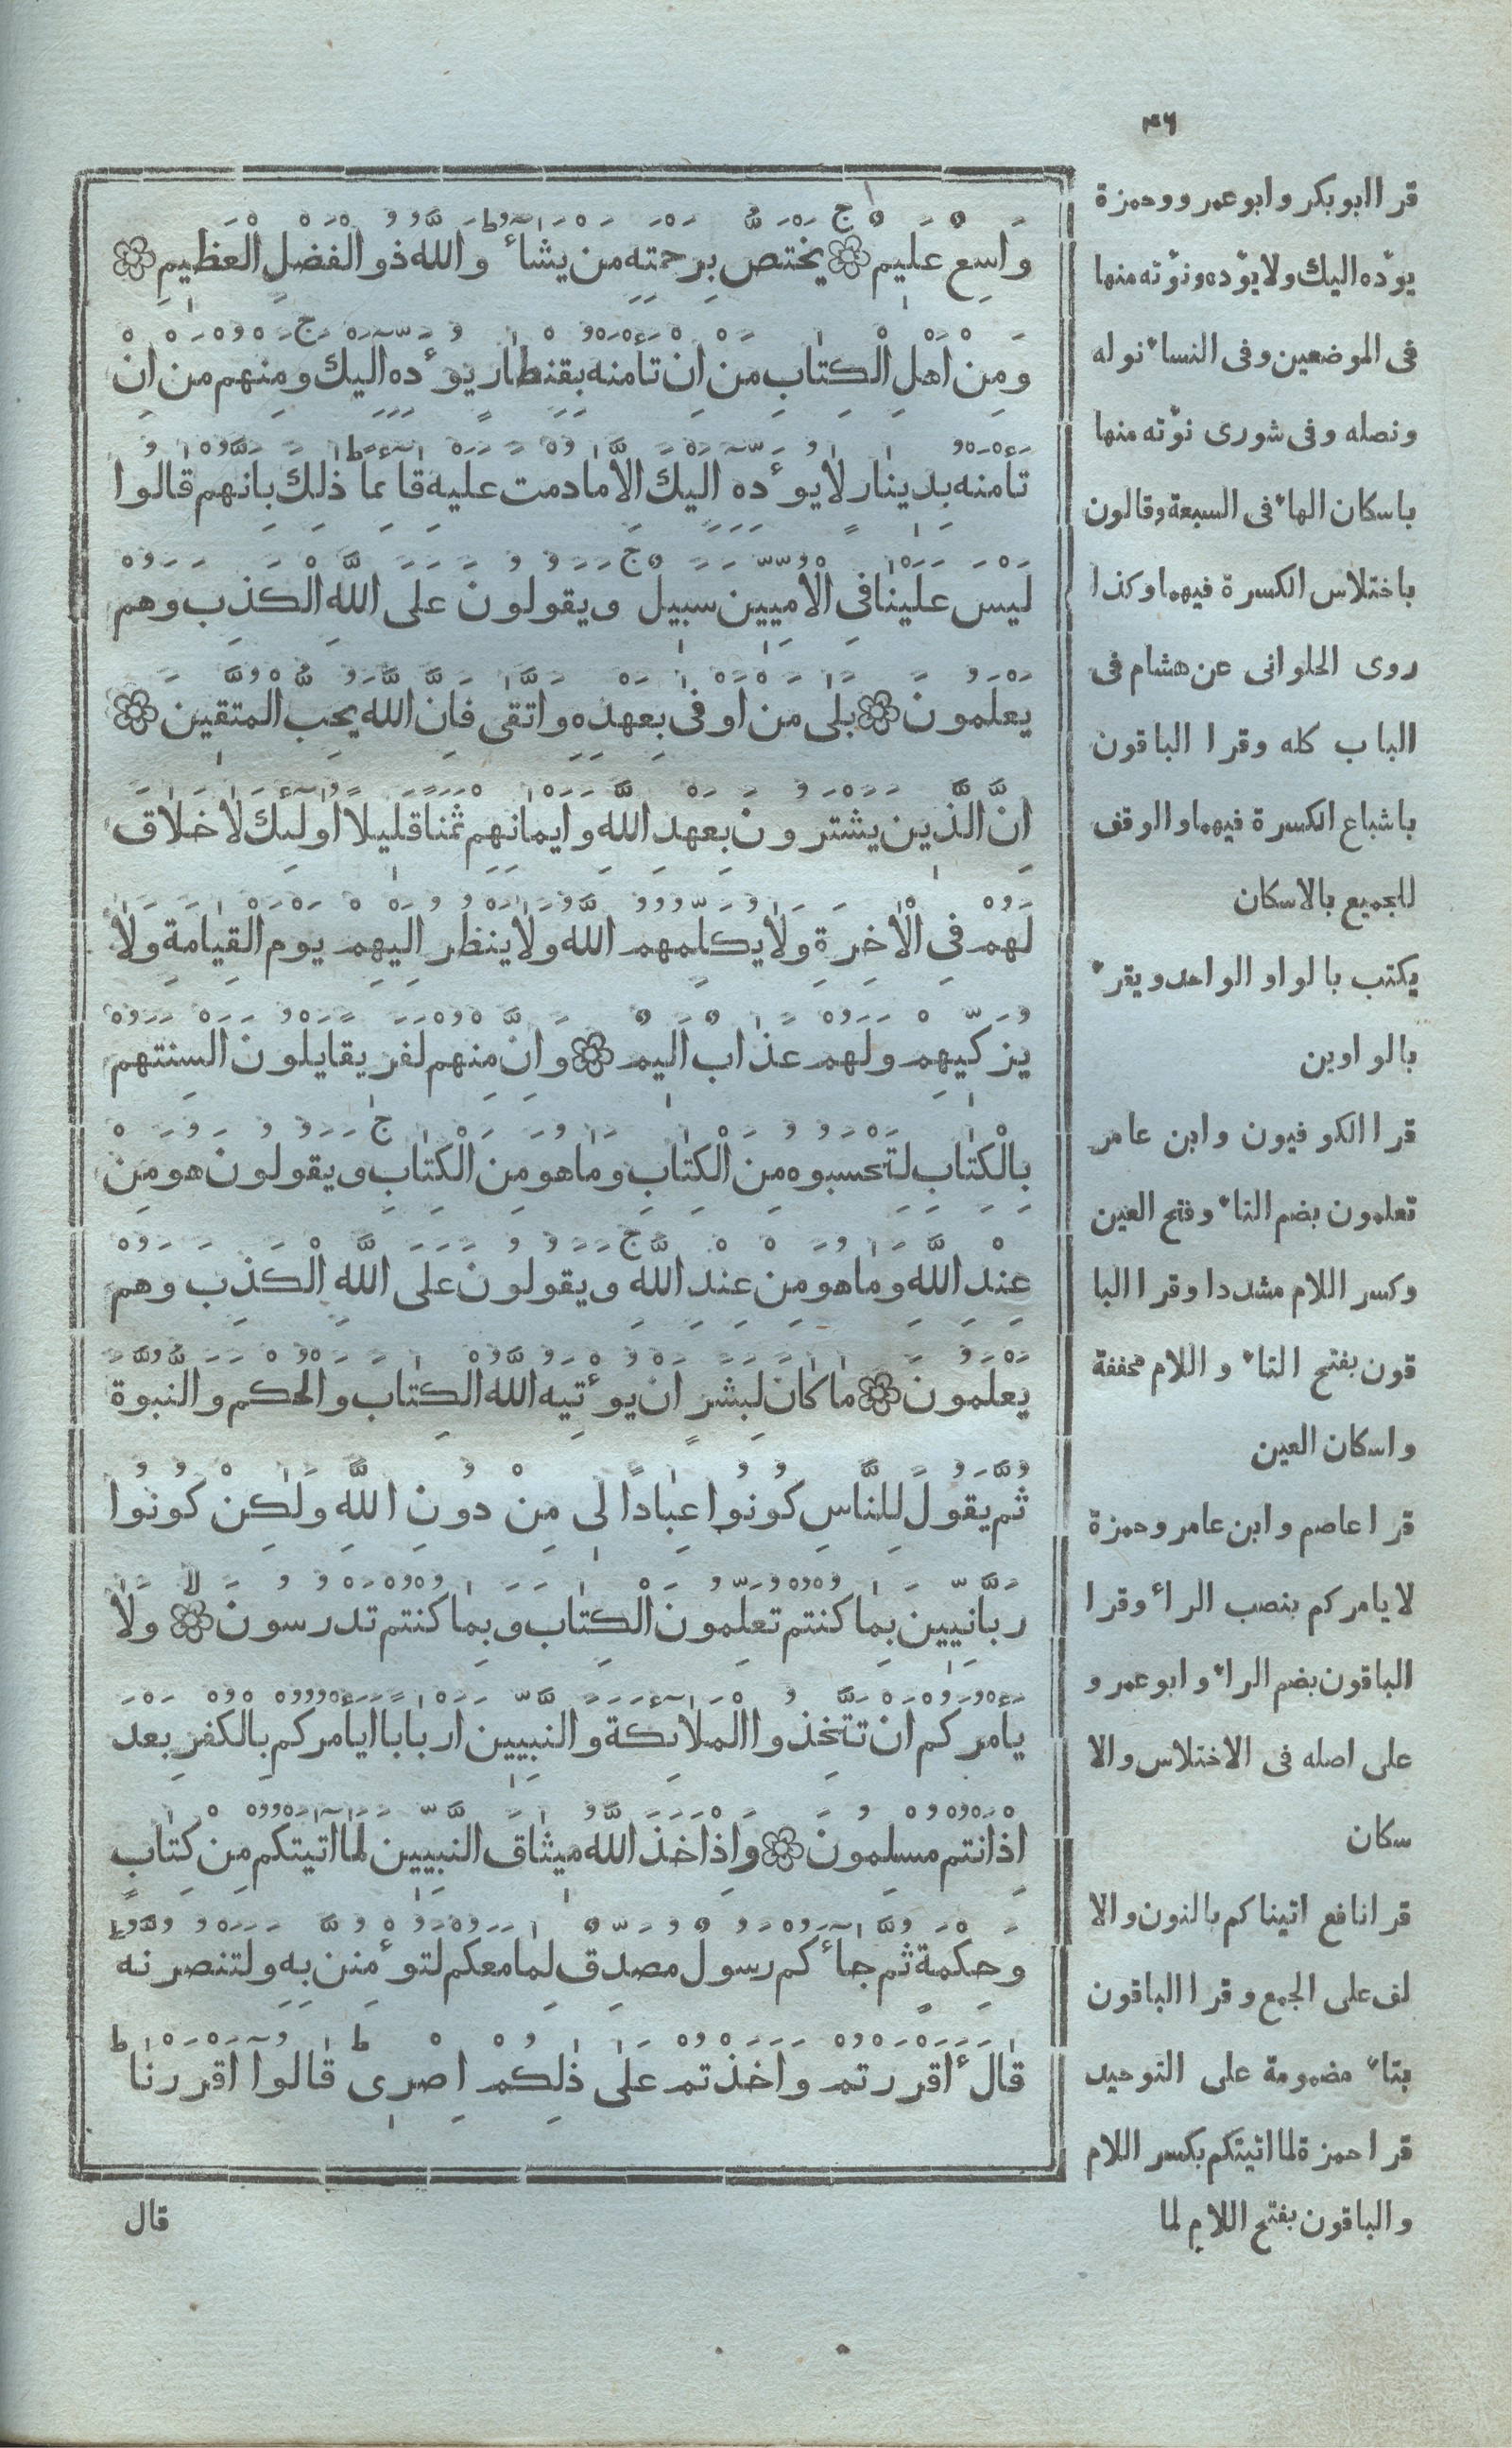 ٤٦
وَاسِعٌ عَلِيمٌ ۞ يَخْتَصُّ بِرَحْمَتِهِ مَنْ يَشَآءُ ط وَاللّٰهُ ذُو الْفَضْلِ الْعَظِيمِ ۞
وَمِنْ اَهْلِ الْكِتَابِ مَنْ اِنْ تَأْمَنْهُ بِقِنْطَارٍ يُؤَدِّهِ اِلَيْكَ ج وَمِنْهُمْ مَنْ اِنْ
تَأْمَنْهُ بِدِينَارٍ لَا يُؤَدِّهِ اِلَيْكَ اِلَّا مَا دُمْتَ عَلَيْهِ قَآئِمًا ط ذٰلِكَ بِاَنَّهُمْ قَالُوا
لَيْسَ عَلَيْنَا فِى الْاُمِّيِّينَ سَبِيلٌ ج وَيَقُولُونَ عَلَى اللّٰهِ الْكَذِبَ وَهُمْ
يَعْلَمُونَ ۞ بَلٰى مَنْ اَوْفٰى بِعَهْدِهِ وَاتَّقٰى فَاِنَّ اللّٰهَ يُحِبُّ الْمُتَّقِينَ ۞
اِنَّ الَّذِينَ يَشْتَرُونَ بِعَهْدِ اللّٰهِ وَاَيْمَانِهِمْ ثَمَنًا قَلِيلًا اُولٰٓئِكَ لَا خَلَاقَ
لَهُمْ فِى الْاٰخِرَةِ وَلَا يُكَلِّمُهُمُ اللّٰهُ وَلَا يَنْظُرُ اِلَيْهِمْ يَوْمَ الْقِيَامَةِ وَلَا
يُزَكِّيهِمْ وَلَهُمْ عَذَابٌ اَلِيمٌ ۞ وَاِنَّ مِنْهُمْ لَفَرِيقًا يَلْوُنَ اَلْسِنَتَهُمْ
بِالْكِتَابِ لِتَحْسَبُوهُ مِنَ الْكِتَابِ وَمَا هُوَ مِنَ الْكِتَابِ ج وَيَقُولُونَ هُوَ مِنْ
عِنْدِ اللّٰهِ وَمَا هُوَ مِنْ عِنْدِ اللّٰهِ ج وَيَقُولُونَ عَلَى اللّٰهِ الْكَذِبَ وَهُمْ
يَعْلَمُونَ ۞ مَا كَانَ لِبَشَرٍ اَنْ يُؤْتِيَهُ اللّٰهُ الْكِتَابَ وَالْحُكْمَ وَالنُّبُوَّةَ
ثُمَّ يَقُولَ لِلنَّاسِ كُونُوا عِبَادًا لِى مِنْ دُونِ اللّٰهِ وَلٰكِنْ كُونُوا
رَبَّانِيِّينَ بِمَا كُنْتُمْ تُعَلِّمُونَ الْكِتَابَ وَبِمَا كُنْتُمْ تَدْرُسُونَ لا ۞ وَلَا
يَأْمُرَكُمْ اَنْ تَتَّخِذُوا الْمَلَآئِكَةَ وَالنَّبِيِّينَ اَرْبَابًا اَيَأْمُرُكُمْ بِالْكُفْرِ بَعْدَ
اِذْ اَنْتُمْ مُسْلِمُونَ ۞ وَاِذْ اَخَذَ اللّٰهُ مِيثَاقَ النَّبِيِّينَ لَمَآ اٰتَيْتُكُمْ مِنْ كِتَابٍ
وَحِكْمَةٍ ثُمَّ جَآءَكُمْ رَسُولٌ مُصَدِّقٌ لِمَا مَعَكُمْ لَتُؤْمِنُنَّ بِهِ وَلَتَنْصُرُنَّهُ ط
قَالَ ءَاَقْرَرْتُمْ وَاَخَذْتُمْ عَلٰى ذٰلِكُمْ اِصْرِى ط قَالُوآ اَقْرَرْنَا ط
قال
قرا ابو بكر وابو عمرو وحمزة
يؤده اليك ولا يؤده ونؤته منها
فى الموضعين وفى النساء نوله
ونصله وفى شورى نؤته منها
باسكان الهاء فى السبعة وقالون
باختلاس الكسرة فيهما وكذا
روى الحلوانى عن هشام فى
الباب كله وقرا الباقون
باشباع الكسرة فيهما والوقف
للجميع بالاسكان
يكتب بالواو الواحد ويقرء
بالواوين
قرا الكوفيون وابن عامر
تعلمون بضم التاء وفتح العين
وكسر اللام مشددا وقرا البا
قون بفتح التاء واللام مخففة
واسكان العين
قرا عاصم وابن عامر وحمزة
لا يامركم بنصب الراء وقرا
الباقون بضم الراء وابو عمرو
على اصله فى الاختلاس والا
سكان
قرا نافع اتيناكم بالنون والا
لف على الجمع وقرا الباقون
بتاء مضمومة على التوحيد
قرا حمزة لما اتيتكم بكسر اللام
والباقون بفتح اللام لما